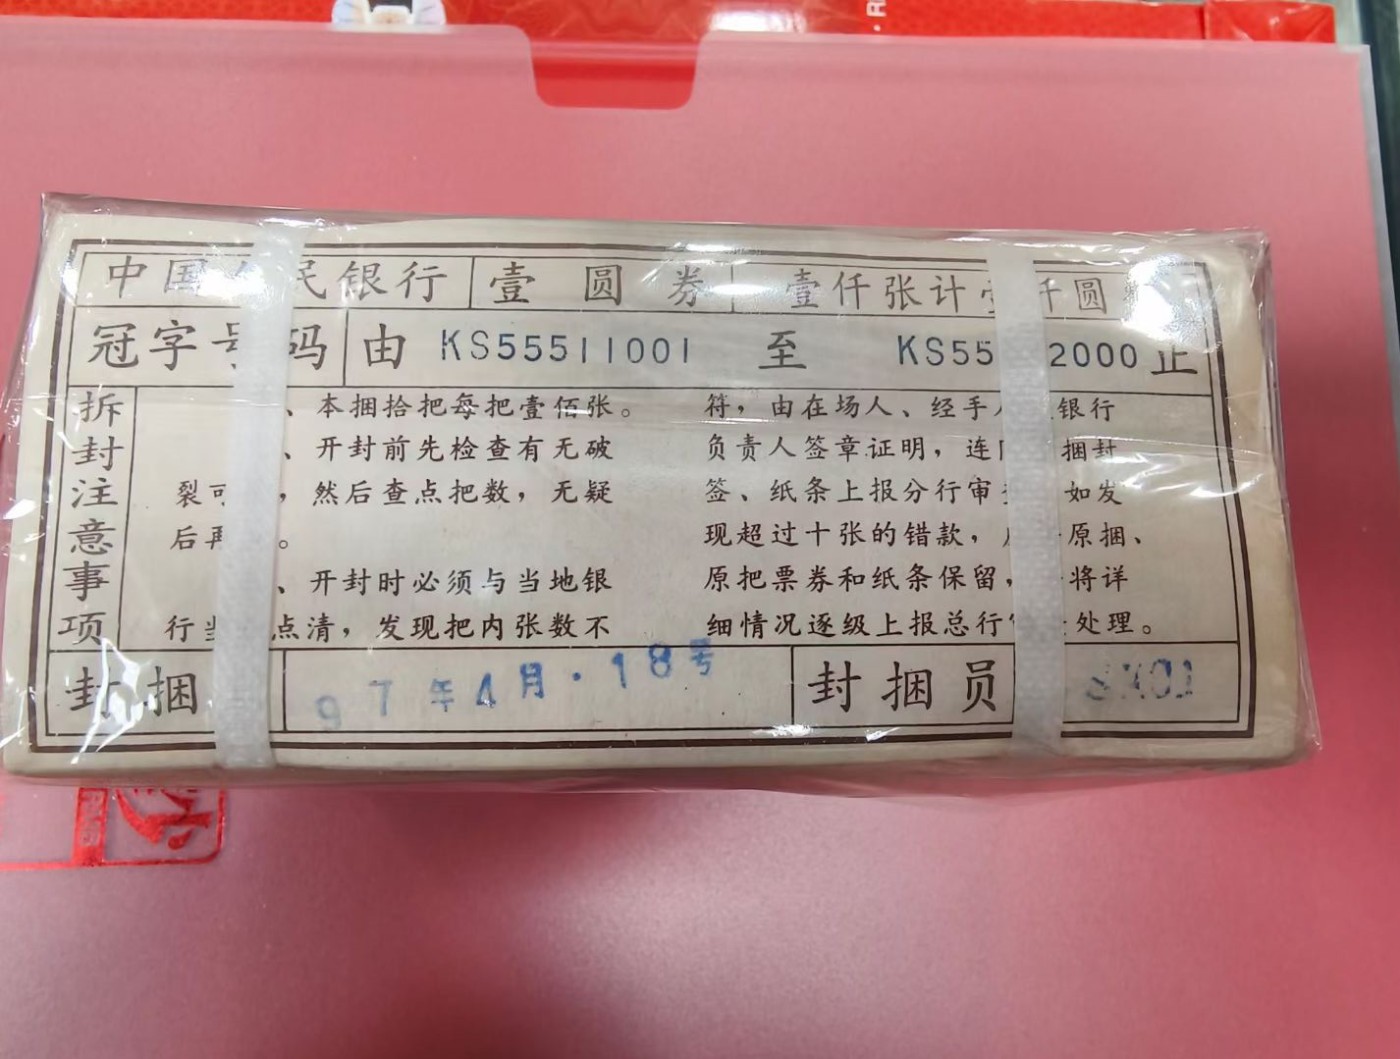 中国人民银行 壹圆券 壹仟张计壹仟圆
冠字号码 由 KS55511001 至 KS55 2000 止
拆封注意事项
、本捆拾把每把壹佰张。
、开封前先检查有无破
裂可 ，然后查点把数，无疑
后再 。
、开封时必须与当地银
行当 点清，发现把内张数不
符，由在场人、经手人 银行
负责人签章证明，连同 捆封
签、纸条上报分行审查 如发
现超过十张的错款，应 原捆、
原把票券和纸条保留， 将详
细情况逐级上报总行 处理。
封捆 97年4月·18号 封捆员